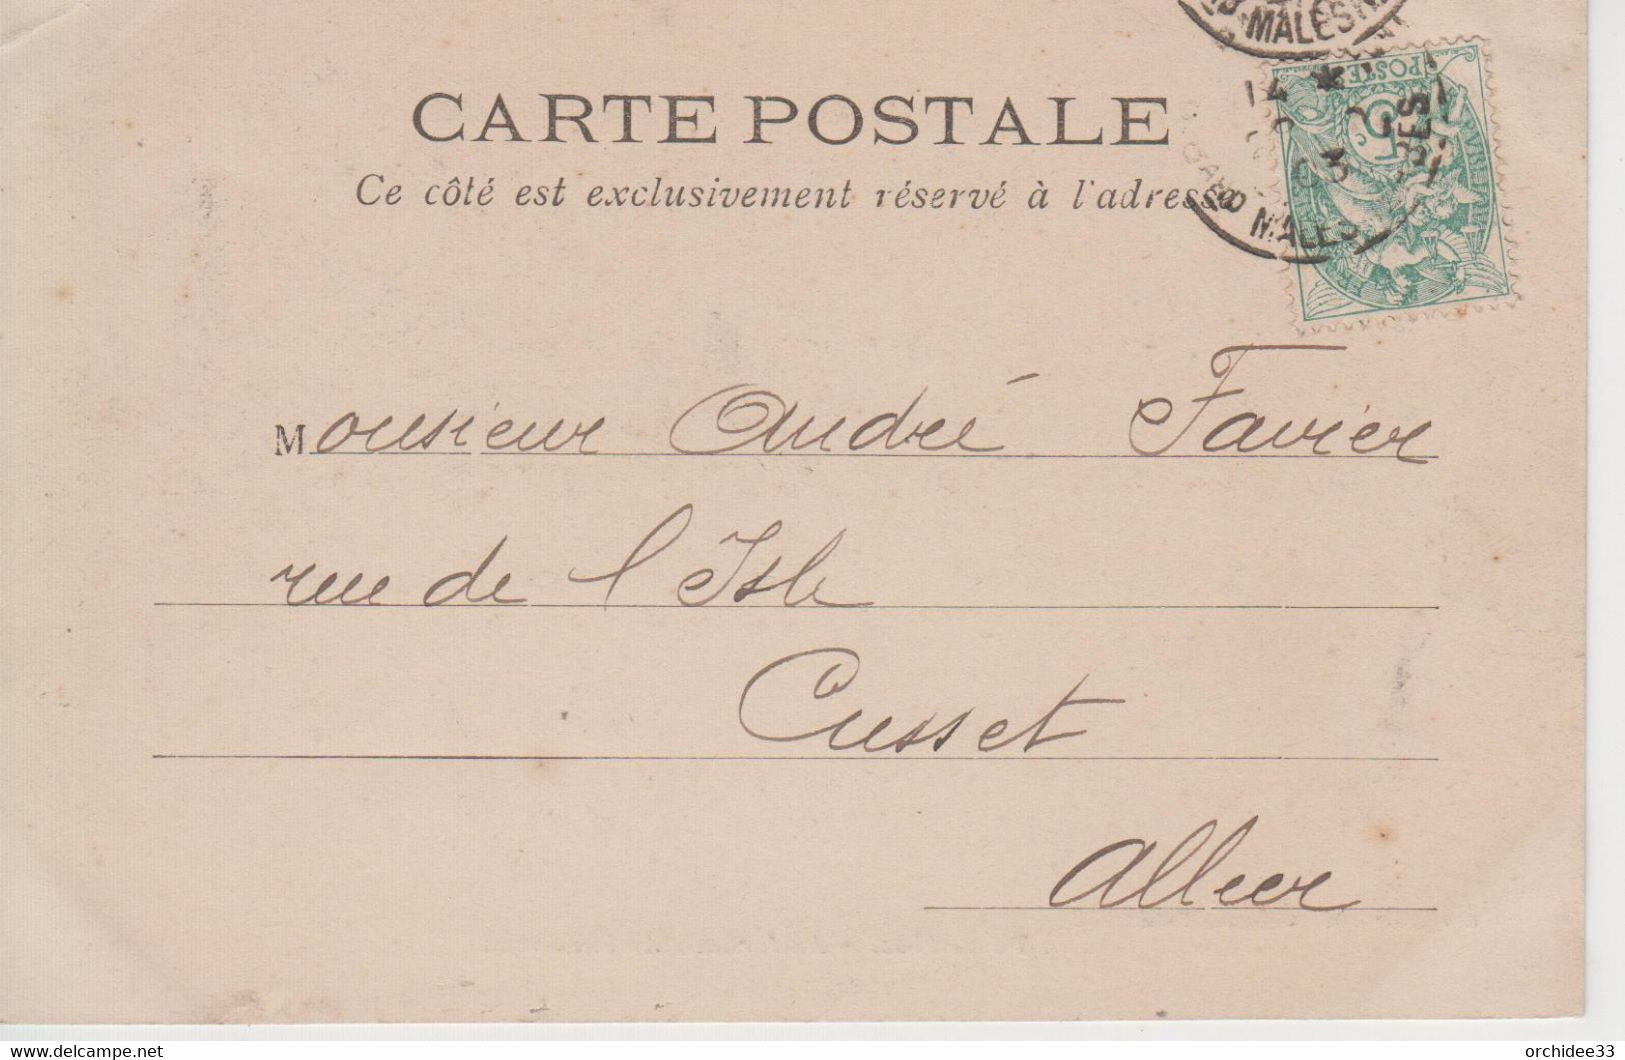 MALES
CARTE POSTALE
Ce côté est exclusivement réservé à l'adresse
POSTE
5 c
14
03
MALES
Monsieur André Favier
rue de l'Isle
Cusset
Allier
delcampe.net
orchidee33